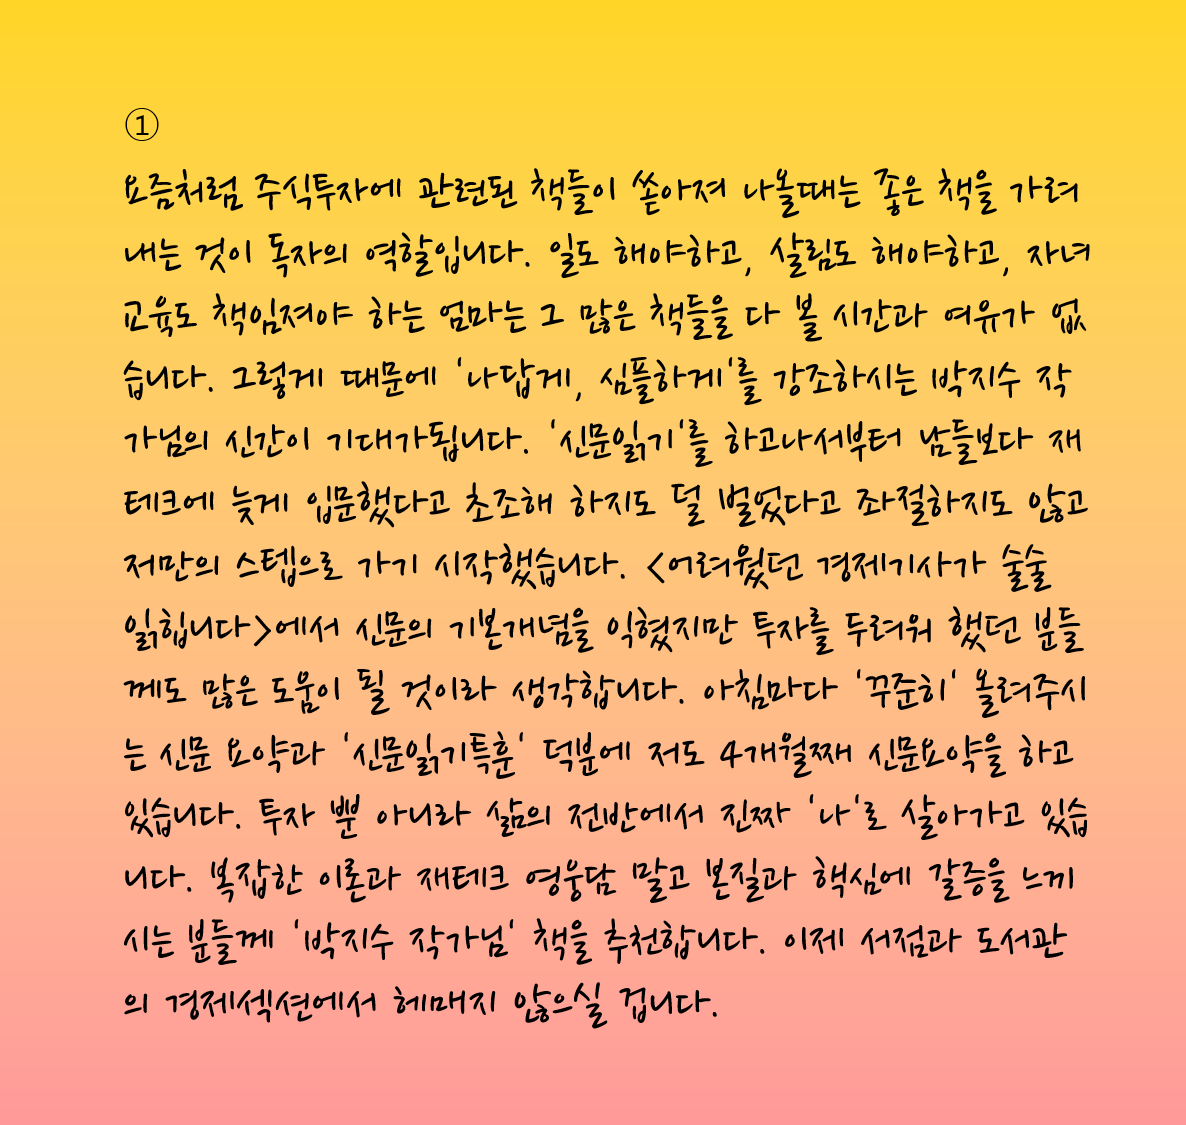 ①
요즘처럼 주식투자에 관련된 책들이 쏟아져 나올때는 좋은 책을 가려
내는 것이 독자의 역할입니다. 일도 해야하고, 살림도 해야하고, 자녀
교육도 책임져야 하는 엄마는 그 많은 책들을 다 볼 시간과 여유가 없
습니다. 그렇게 때문에 '나답게, 심플하게'를 강조하시는 박지수 작
가님의 신간이 기대가됩니다. '신문읽기'를 하고나서부터 남들보다 재
테크에 늦게 입문했다고 초조해 하지도 덜 벌었다고 좌절하지도 않고
저만의 스텝으로 가기 시작했습니다. <어려웠던 경제기사가 술술
읽힙니다>에서 신문의 기본개념을 익혔지만 투자를 두려워 했던 분들
께도 많은 도움이 될 것이라 생각합니다. 아침마다 '꾸준히' 올려주시
는 신문 요약과 '신문읽기특훈' 덕분에 저도 4개월째 신문요약을 하고
있습니다. 투자 뿐 아니라 삶의 전반에서 진짜 '나'로 살아가고 있습
니다. 복잡한 이론과 재테크 영웅담 말고 본질과 핵심에 갈증을 느끼
시는 분들께 '박지수 작가님' 책을 추천합니다. 이제 서점과 도서관
의 경제섹션에서 헤매지 않으실 겁니다.